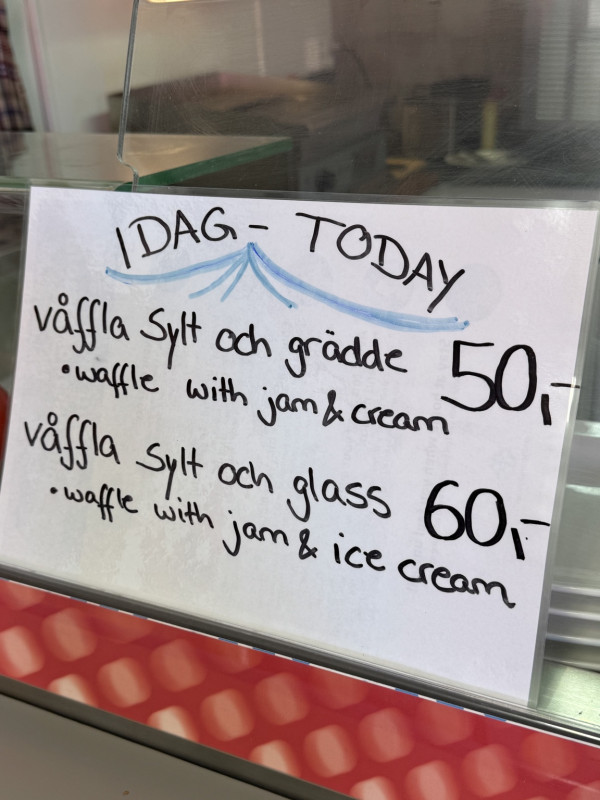 IDAG - TODAY
våffla Sylt och grädde 50,-
• waffle with jam & cream
våffla Sylt och glass 60,-
• waffle with jam & ice cream